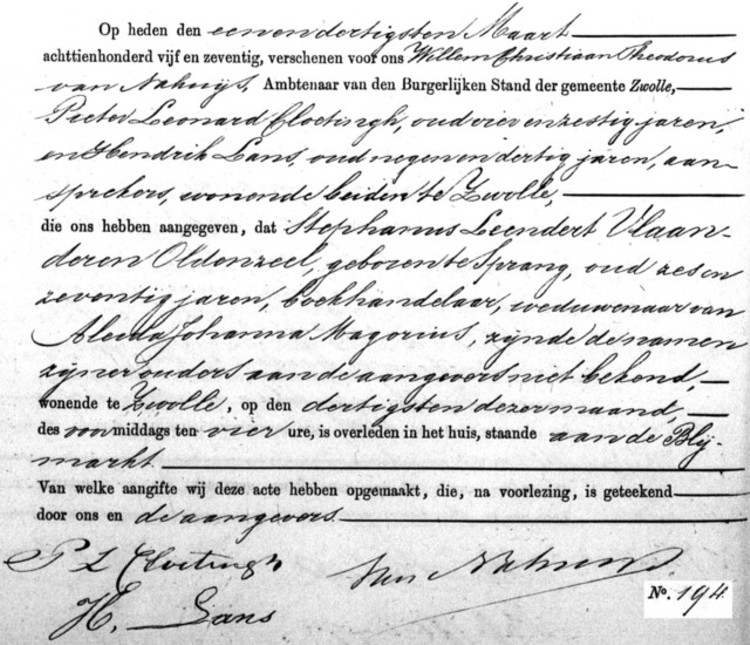 Op heden den eenendertigsten Maart
achttienhonderd vijf en zeventig, verschenen voor ons Willem Christiaan Theodorus
van Nahuijs, Ambtenaar van den Burgerlijken Stand der gemeente Zwolle,
Pieter Leonard Cloetingh, oud vier en zestig jaren,
en Hendrik Lans, oud negen en dertig jaren, aan-
sprekers, wonende beiden te Zwolle,
die ons hebben aangegeven, dat Stephanus Leendert Vlaan-
deren Oldenzeel, geboren te Sprang, oud zes en
zeventig jaren, boekhandelaar, weduwenaar van
Alida Johanna Magorius, zijnde de namen
zijner ouders aan de aangevers niet bekend,
wonende te Zwolle, op den dertigsten dezer maand,
des voormiddags ten vier ure, is overleden in het huis, staande aan de Blij-
markt
Van welke aangifte wij deze acte hebben opgemaakt, die, na voorlezing, is geteekend
door ons en de aangevers.
P L Cloetingh
van Nahuijs
H. Lans
No. 194